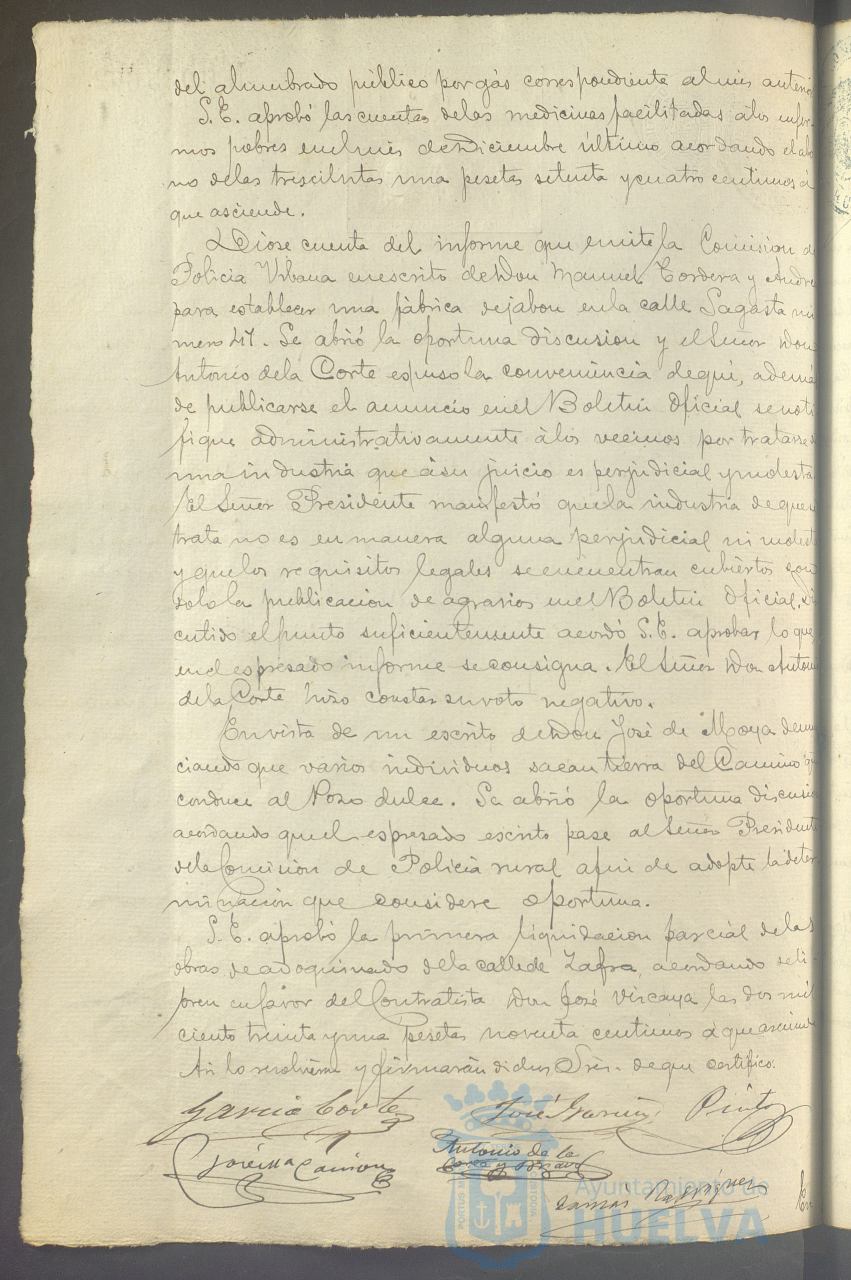 del alumbrado público por gás correspondiente al mes anterio
S. E. aprobó las cuentas de las medicinas facilitadas á los enfer-
mos pobres en el mes de Diciembre último acordando el abo
no de las trescientas una pesetas setenta y cuatro centimos á
que asciende.
Diose cuenta del informe que emite la Comision de
Policia Urbana en escrito de Don Manuel Cordera y Andre
para establecer una fábrica de jabon en la calle Sagasta nú
mero 47. Se abrió la oportuna discusion y el Señor Don
Antonio de la Corte espuso la conveniencia de que, ademá
de publicarse el anuncio en el Boletin Oficial se noti
fique administrativamente á los vecinos por tratarse
una industria que á su juicio es perjudicial y molesta
El Señor Presidente manifestó que la industria de que
trata no es en manera alguna perjudicial ni molest
y que los requisitos legales se encuentran cubiertos con
solo la publicacion de agravios en el Boletin Oficial. Di
cutido el punto suficientemente acordó S. E. aprobar lo que
en el espresado informe se consigna. El Señor Don Anton
de la Corte hizo constar su voto negativo.
En vista de un escrito de Don José de Moya denun
ciando que varios individuos sacan tierra del Camino q
conduce al Pozo dulce. Se abrió la oportuna discusio
acordando que el espresado escrito pase al Señor Presidente
de la Comision de Policia rural a fin de adopte la deter
minacion que considere oportuna.
S. E. aprobó la primera liquidacion parcial de las
obras de adoquinado de la calle de Zafra, acordando se li-
bren en favor del Contratista Don José Vizcaya las dos mil
ciento treinta y una pesetas noventa centimos a que asciende
Asi lo resolvieron y firmarán dichos Sres. de que certifico.
Garcia Cortes José Garcia Pinto
Antonio de la
Corte y Bravo
Rodriguez
En
Ayuntamiento de
HUELVA